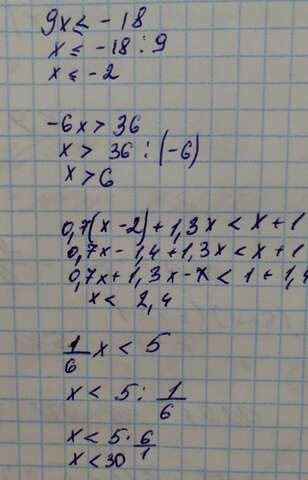 9x ≤ - 18
x ≤ -18 : 9
x ≤ -2
-6x > 36
x > 36 : (-6)
x > 6
0,7(x-2) + 1,3x < x + 1
0,7x - 1,4 + 1,3x < x + 1
0,7x + 1,3x - x < 1 + 1,4
x < 2,4
1/6 x < 5
x < 5 : 1/6
x < 5 · 6/1
x < 30